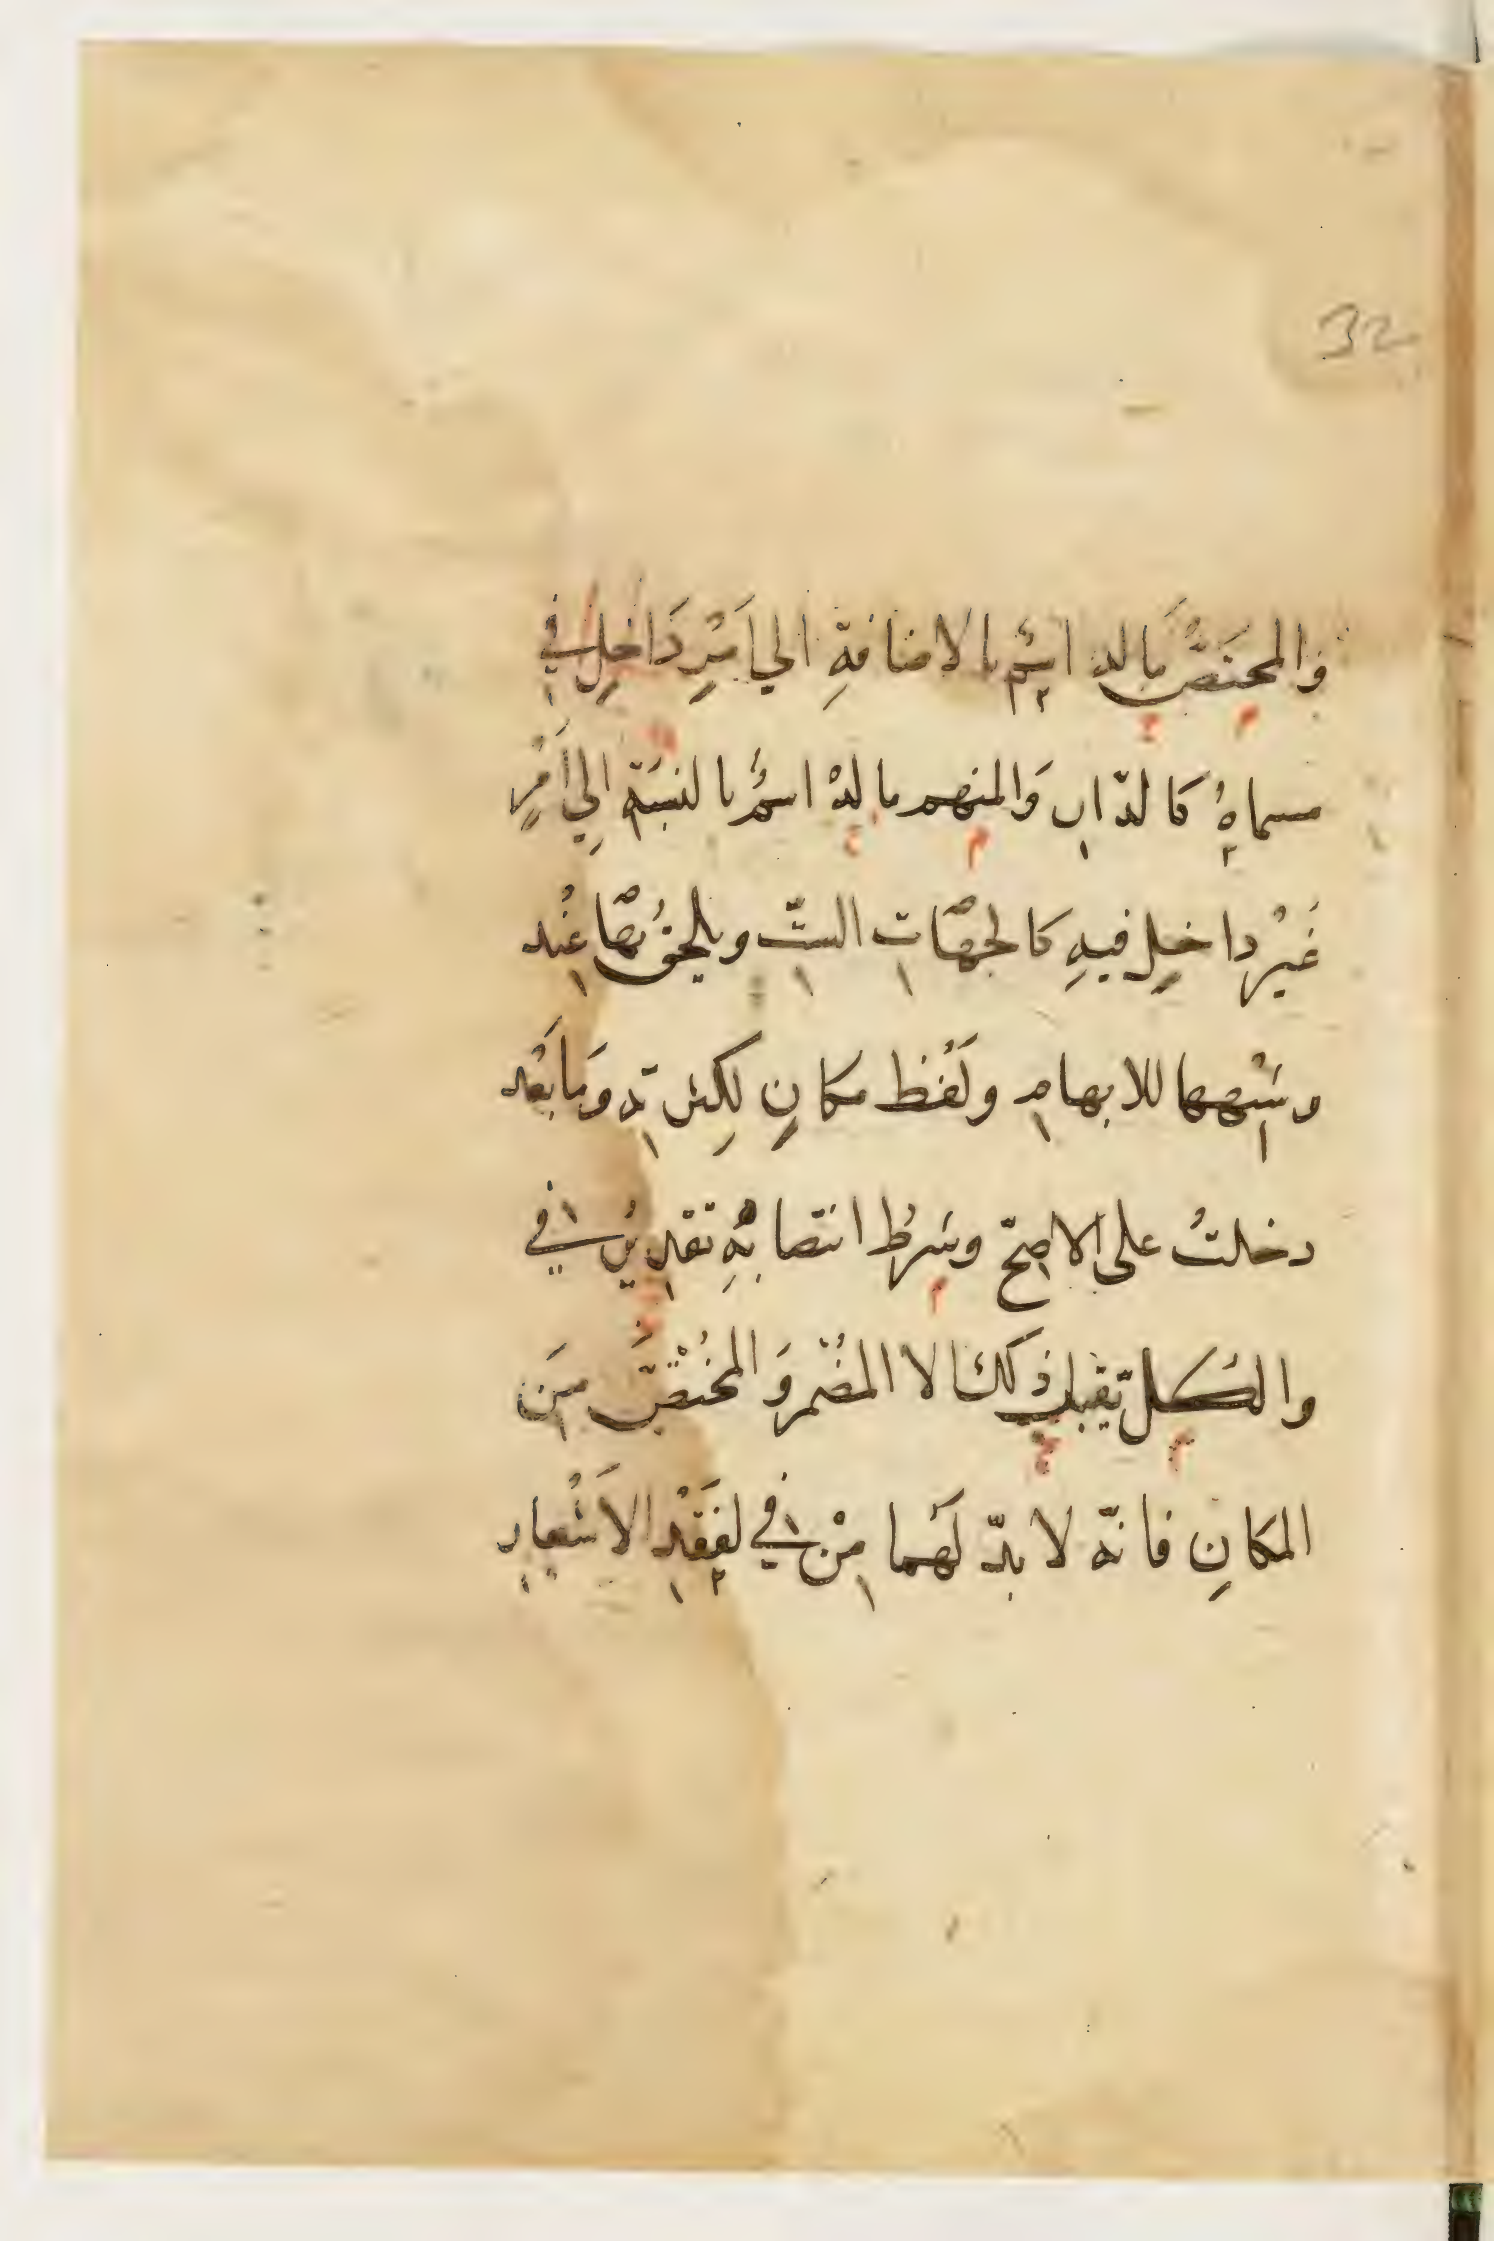 32
وَالمختَصُّ مَا له اسْمٌ بالاضافةِ الي اَمْرٍ دَاخلٍ في
مسماهُ كالدّار وَالمبهم ما لهُ اسمٌ بالنسبَةِ اِلي اَمْرٍ
غَيْرِ داخلٍ فيهِ كالجهَات الستّ ويلحقُ بهَا عِنْد
وشبْهها للابهامِ ولَفْظ مكانٍ لِكثرَته وَمَا بَعْد
دخلتُ على الاصحّ وشَرطُ انتصابهِ تقديرُ في
والكلّ يَقبل ذلك الا المضْمر وَالمخْتصَّ مِنَ
المكانِ فانّه لا بدّ لَهما مِنْ في لفَقْدِ الاَشْعارِ